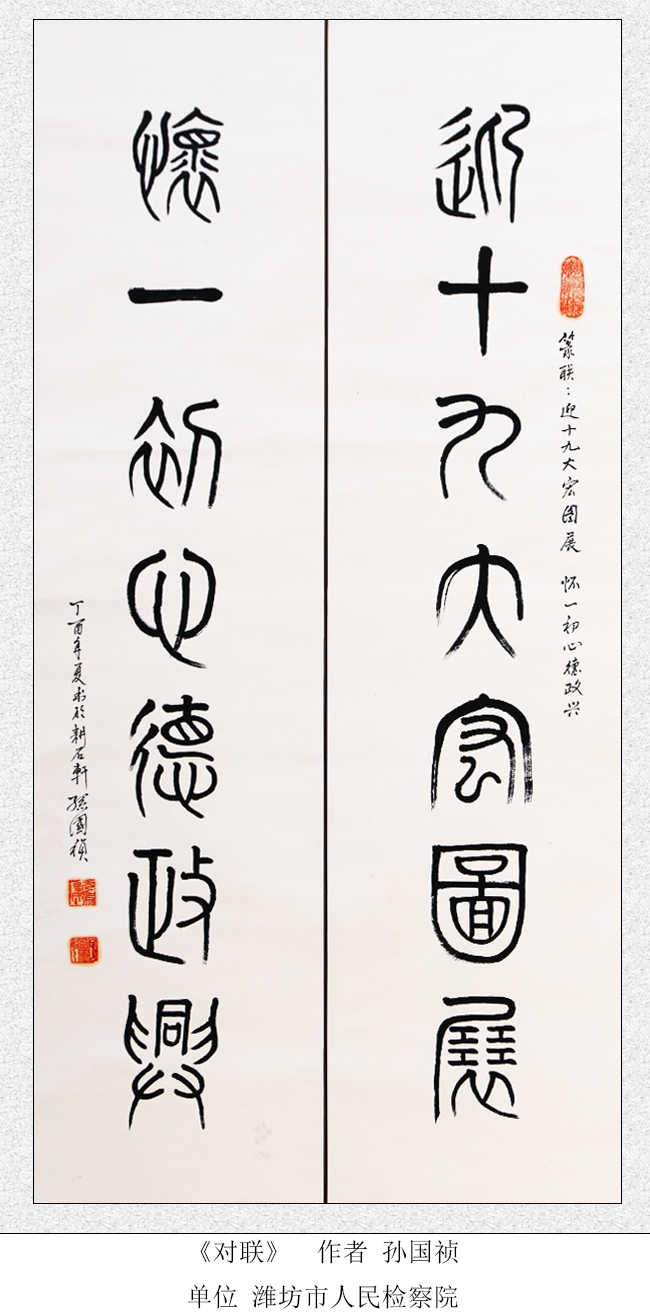 迎十九大宏圖展
懷一初心德政興
篆联：迎十九大宏图展 怀一初心德政兴
丁酉年夏书於耕石軒 孫國禎
《对联》 作者 孙国祯
单位 潍坊市人民检察院